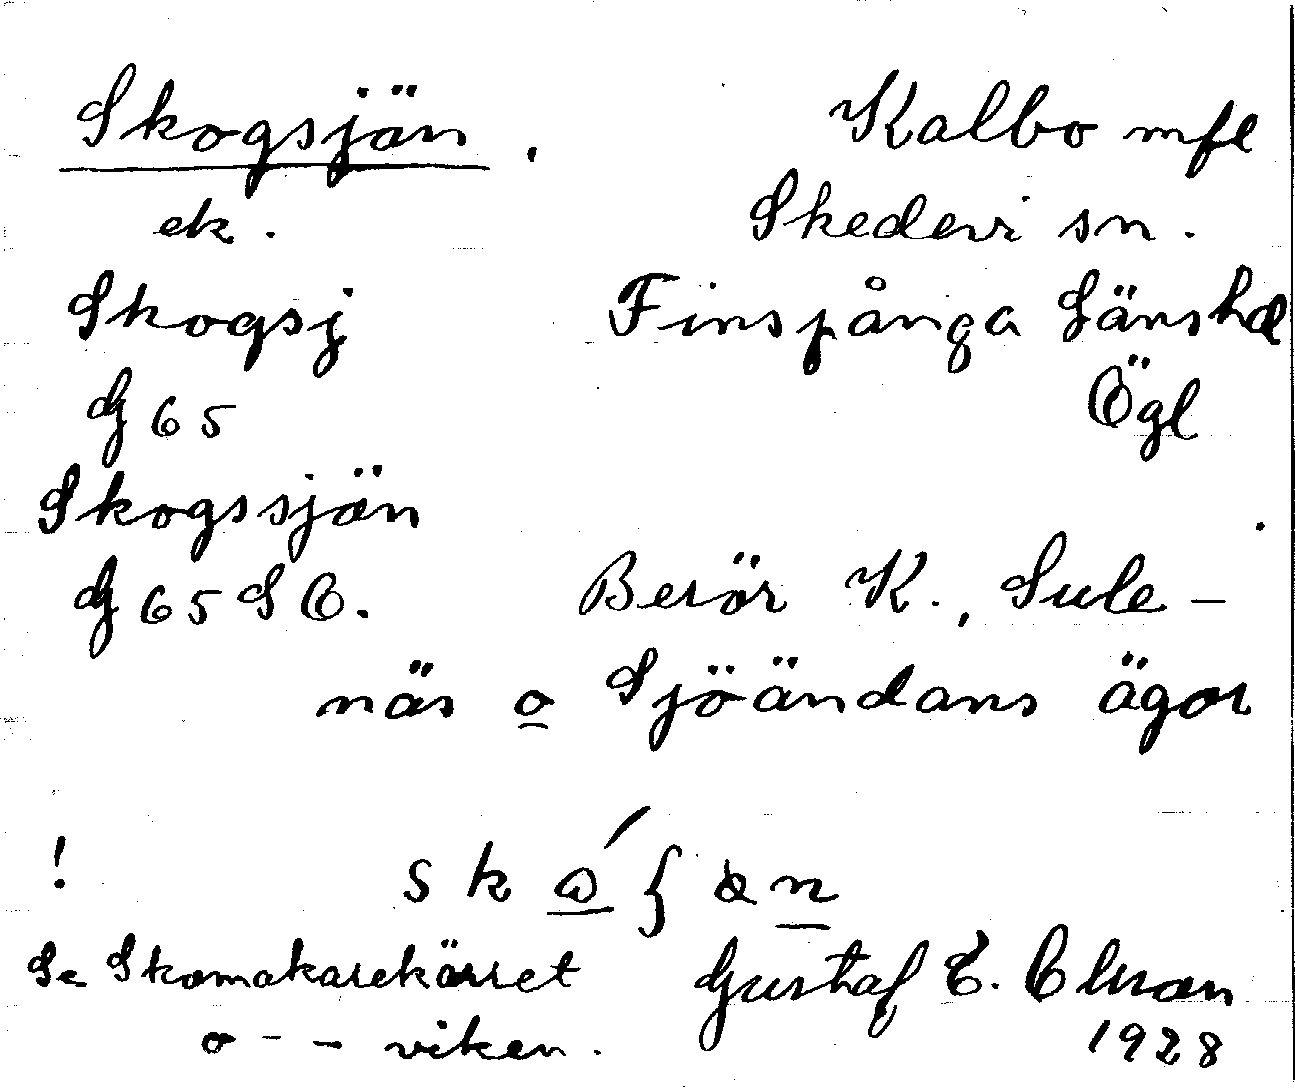 Skogsjän. Kalbo mfl
ek. Skedevi sn.
Skogsj Finspånga Länshd
G 65 Ögl
Skogssjän
G 65 SO. Berör K., Sule-
näs o Sjöändans ägor
!
Se Skomakarekärret Gustaf E.
o - - viken. 1928